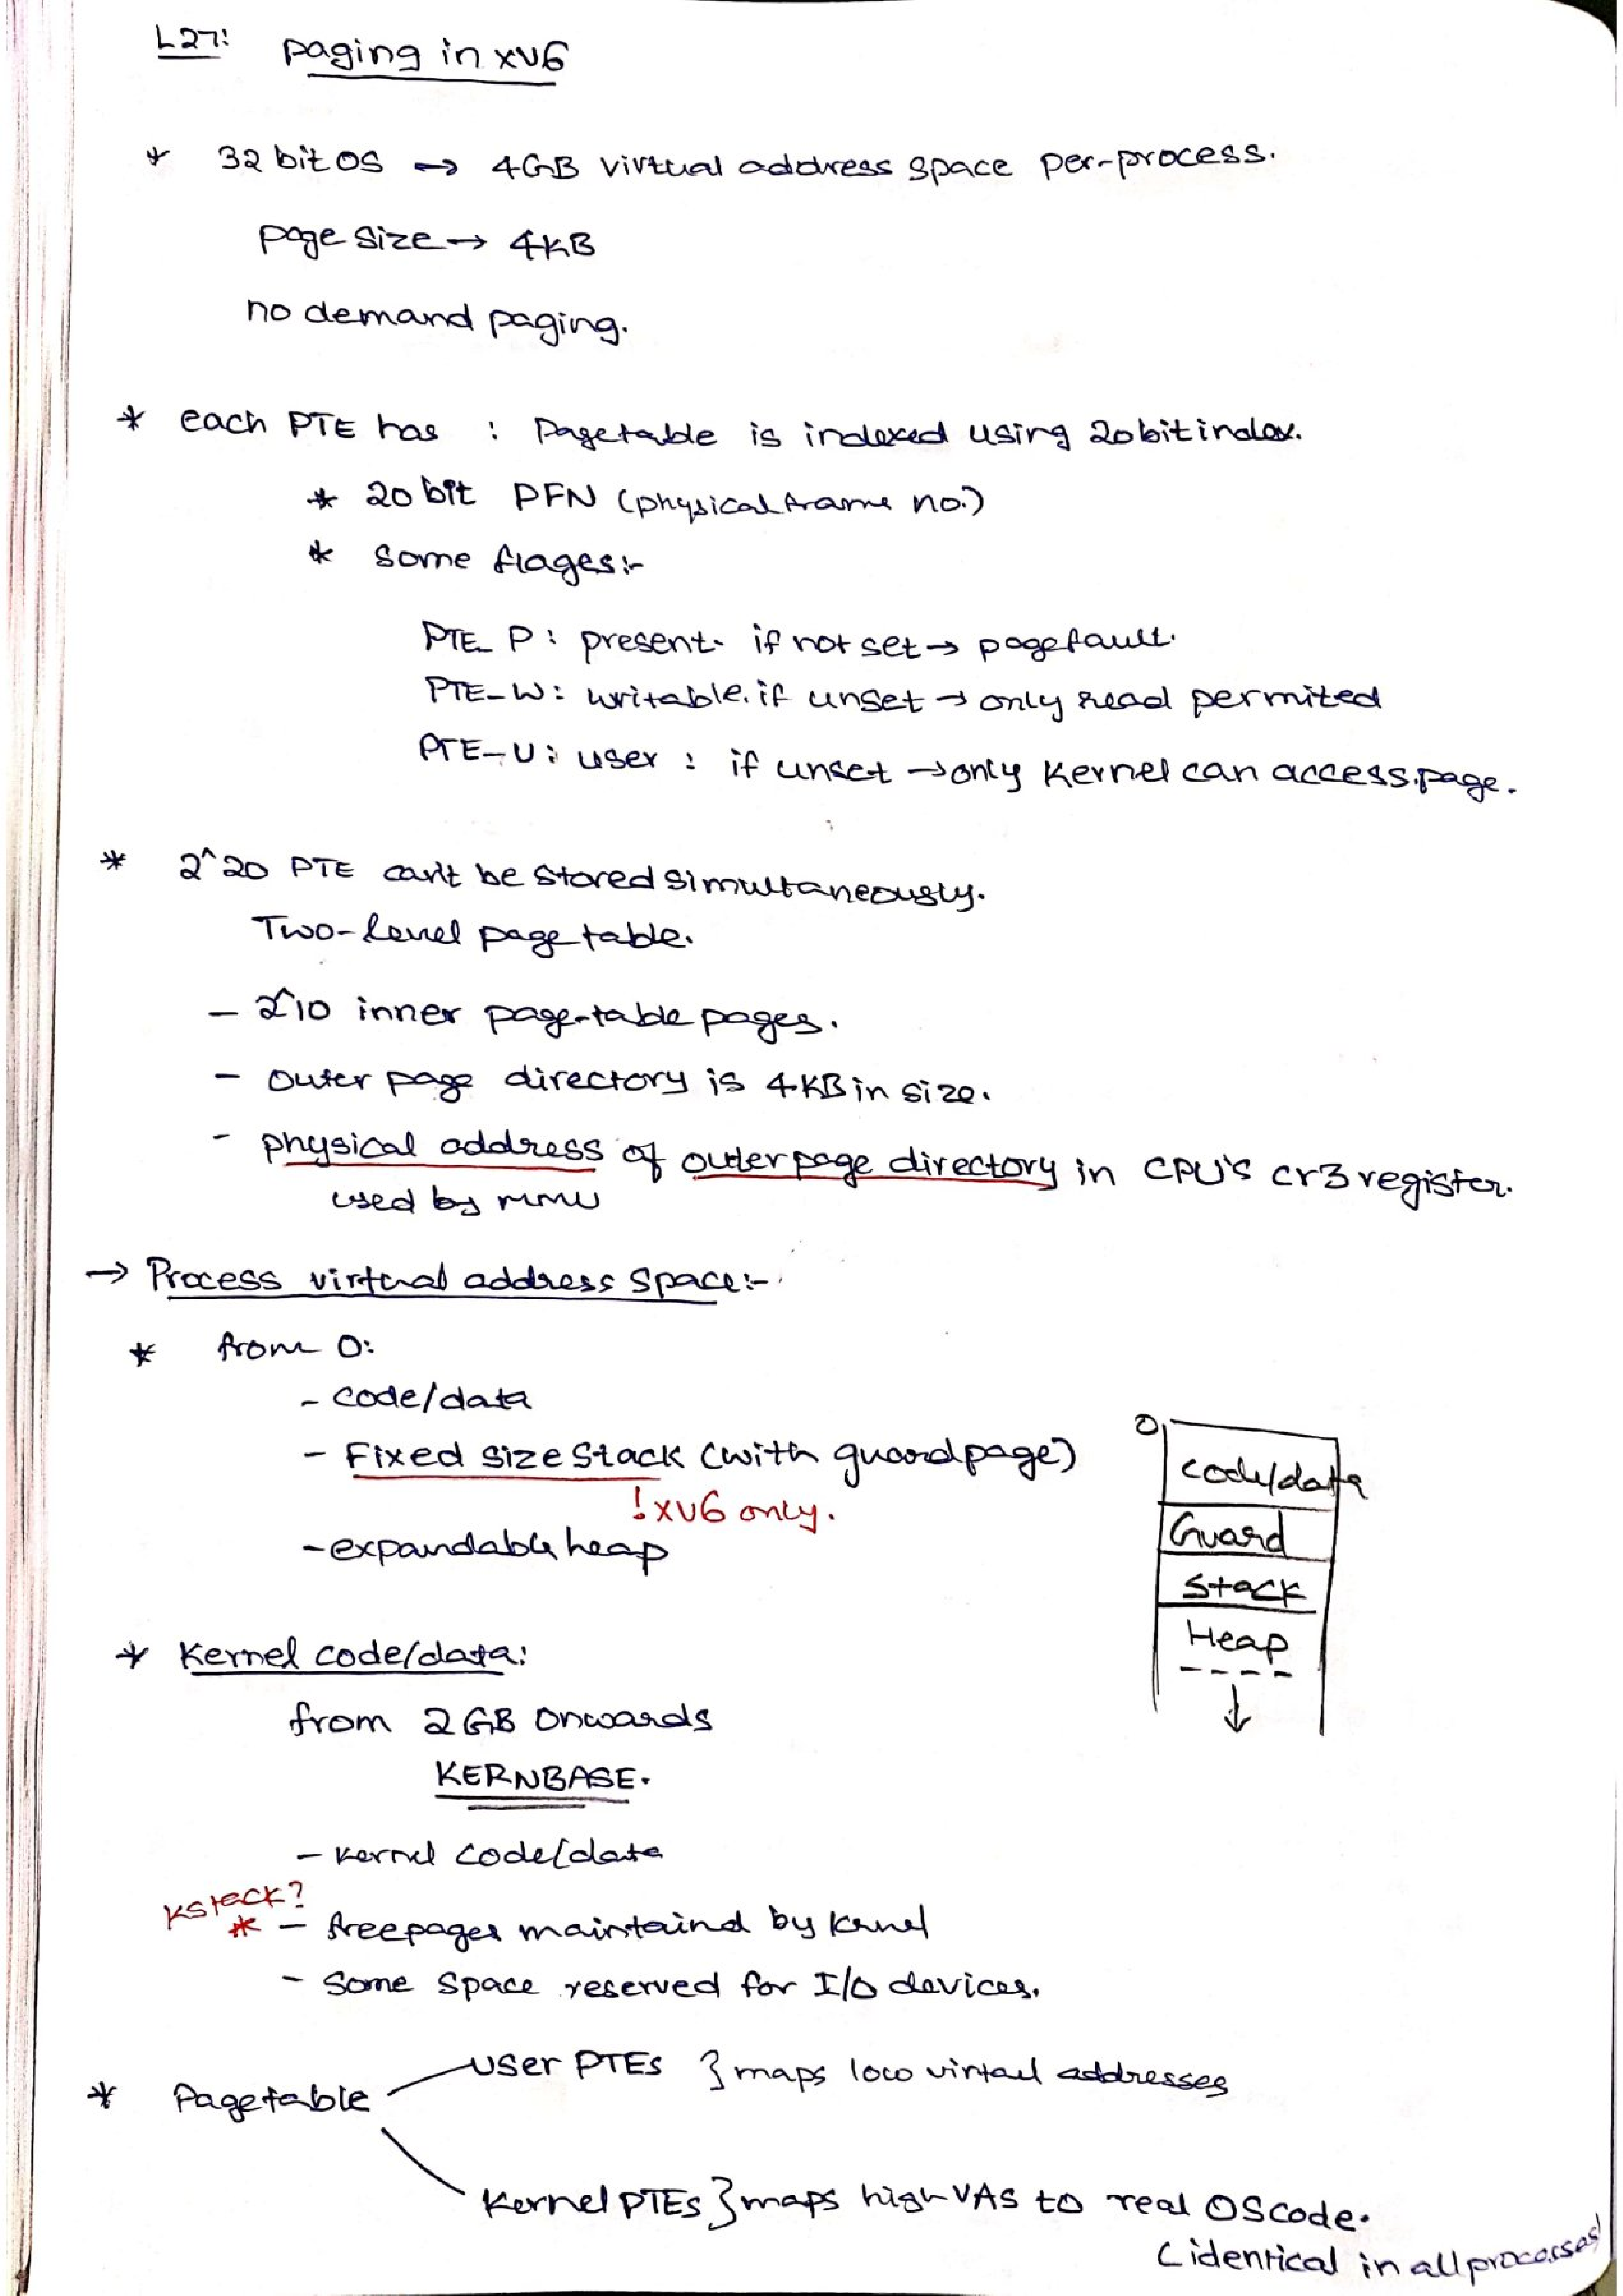 L27: paging in xv6
* 32 bit OS → 4GB virtual address space per-process.
page size → 4KB
no demand paging.
* each PTE has : Pagetable is indexed using 20bit index.
* 20 bit PFN (physical frame no.)
* Some flages:-
PTE_P: present. if not set → pagefault.
PTE_W: writable. if unset → only read permited
PTE_U: user : if unset → only Kernel can access page.
* 2^20 PTE can't be stored simultaneously.
Two-level page table.
- 2^10 inner page-table pages.
- outer page directory is 4KB in size.
- physical address of outerpage directory in CPU's cr3 register.
used by mmu
→ Process virtual address space:-
* from 0:
- code/data
- Fixed size stack (with guardpage)
! xv6 only.
- expandable heap
0
code/data
Guard
Stack
Heap
* Kernel code/data:
from 2GB onwards
KERNBASE.
- kernel code/data
kstack?
* - freepages maintaind by kernel
- Some space reserved for I/O devices.
* Pagetable
user PTEs } maps low virtual addresses
Kernel PTEs } maps high VAS to real OS code.
(identical in all processes)